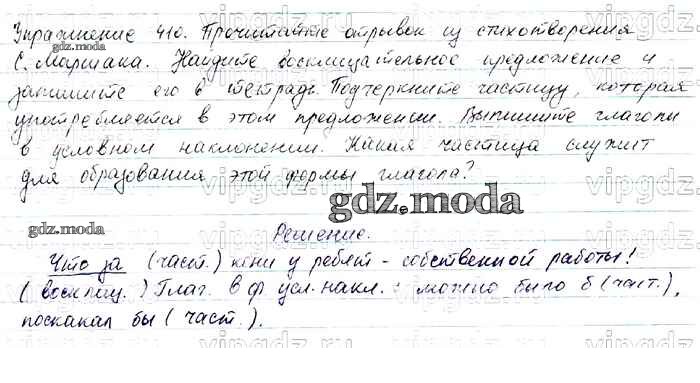 Упражнение 410. Прочитайте отрывок из стихотворения
gdz.moda
С. Маршака. Найдите восклицательное предложение и
запишите его в тетрадь. Подчеркните частицу, которая
употребляется в этом предложении. Выпишите глаголы
в условном наклонении. Какая частица служит
для образования этой формы глагола?
gdz.moda
gdz.moda
Решение.
Что за (част.) кони у ребят - собственной работы!
(восклиц.) Глаг. в ф. усл. накл. : можно было б (част.),
поскакал бы (част.).